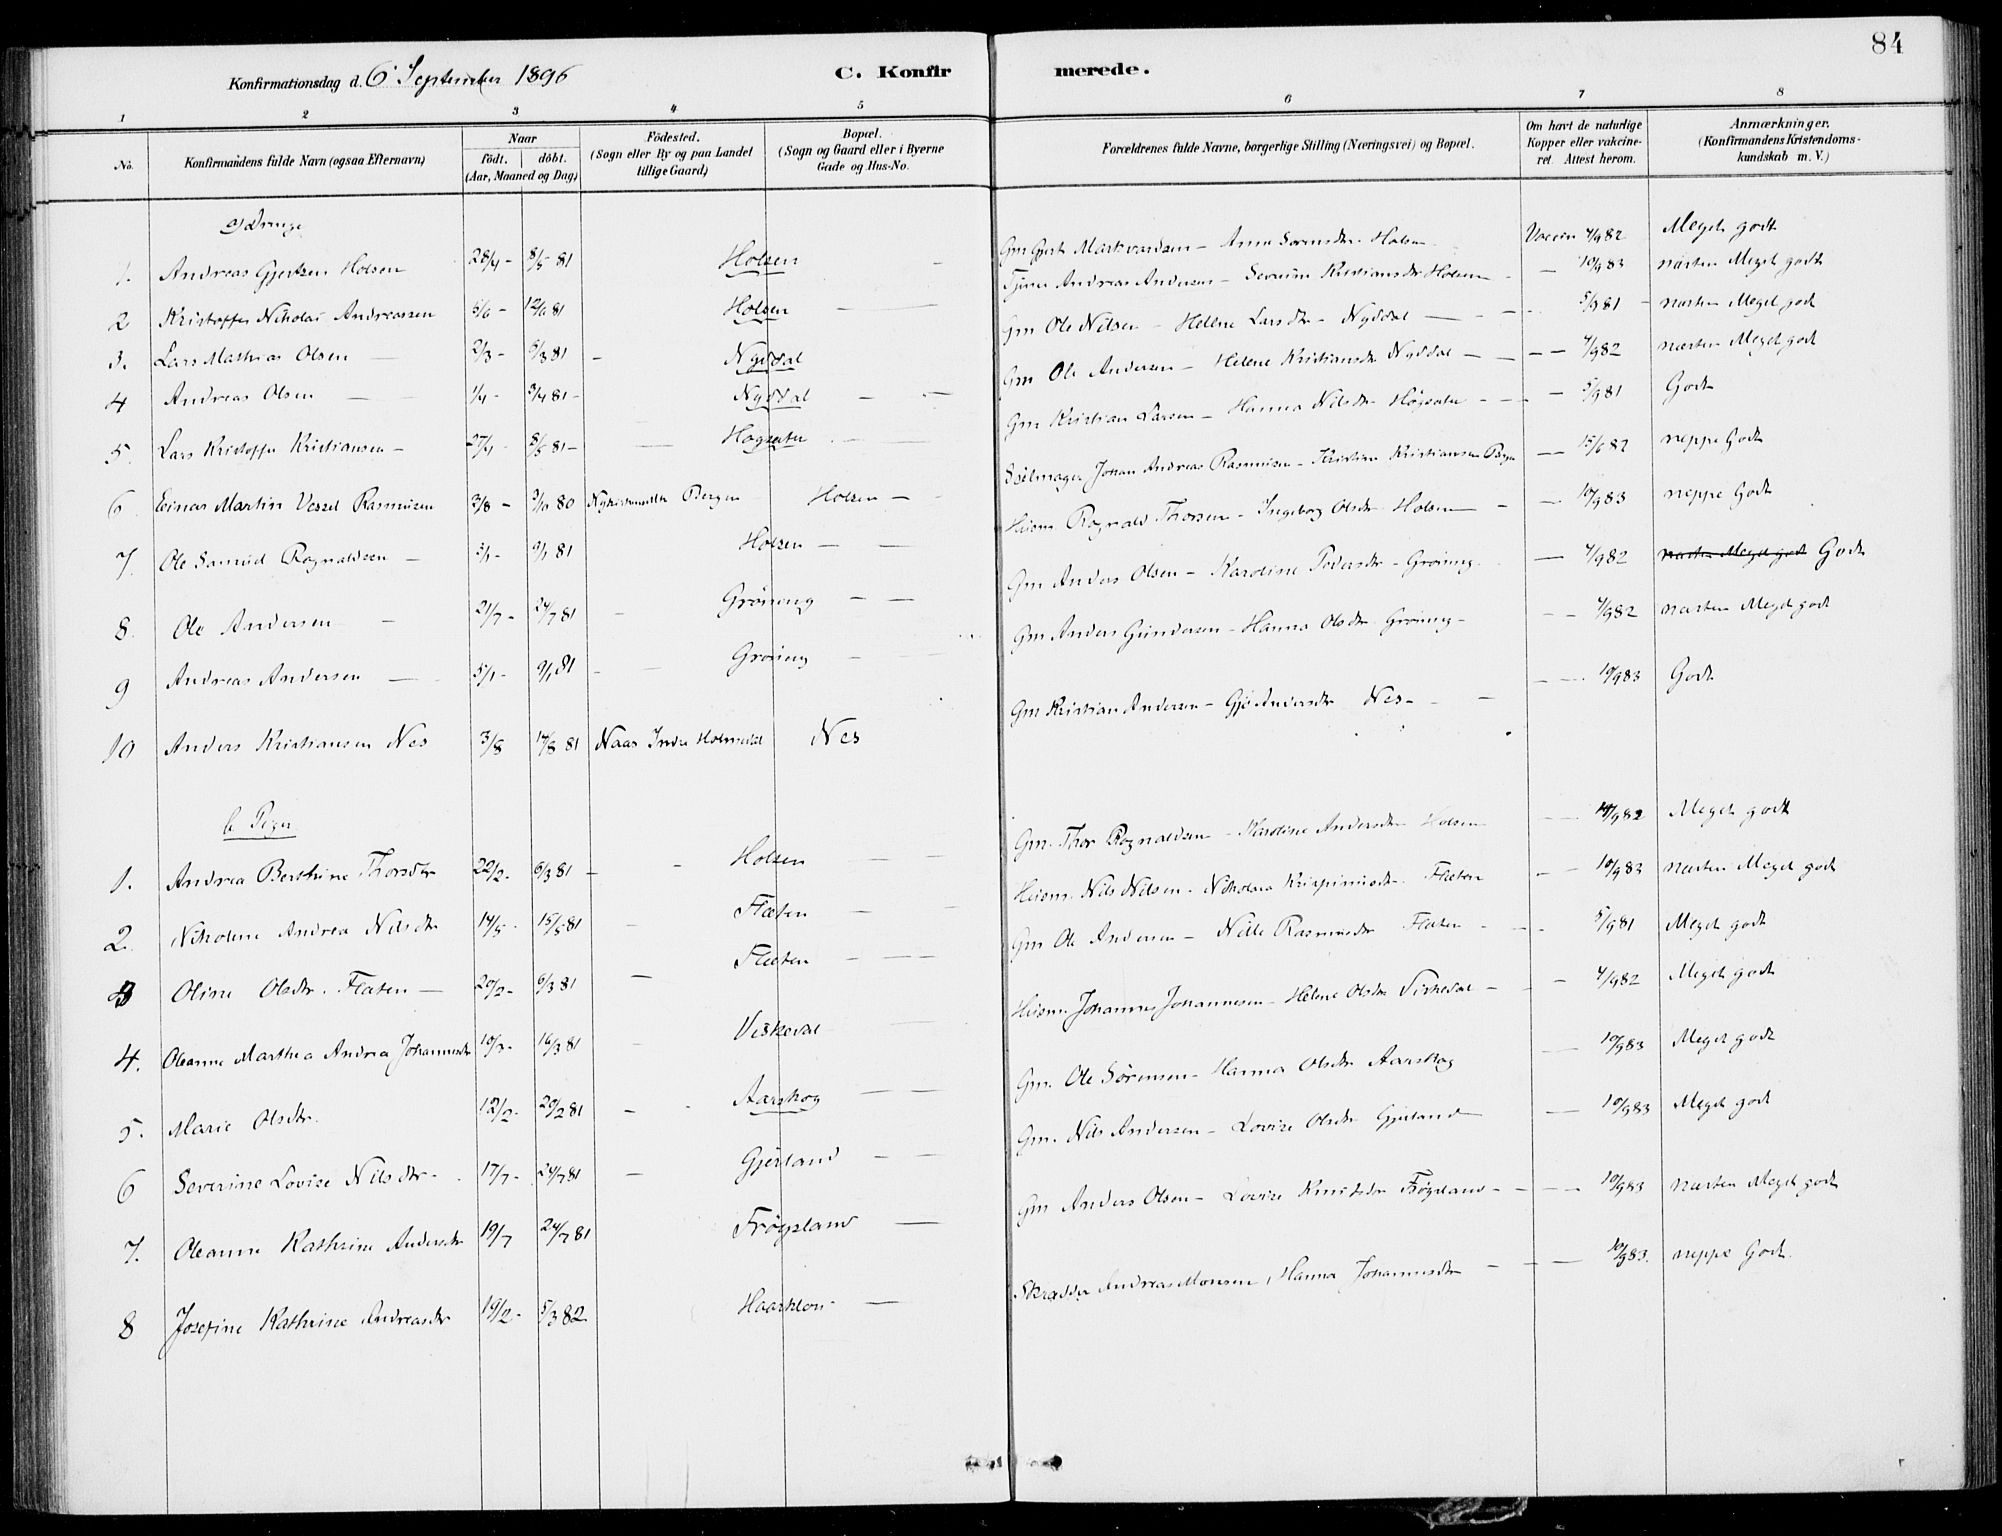 84
Konfirmationsdag d. 6 September 1896
C. Konfirmerede.
1 2 3 4 5 6 7 8
No.
Konfirmandens fulde Navn (ogsaa Efternavn)
Naar
födt. döbt.
(Aar, Maaned og Dag)
Födested.
(Sogn eller By og paa Landet
tillige Gaard)
Bopæl.
(Sogn og Gaard eller i Byerne
Gade og Hus-No.
Forældrenes fulde Navne, borgerlige Stilling (Næringsvei) og Bopæl.
Om havt de naturlige
Kopper eller vakcine-
ret. Attest herom.
Anmærkninger.
(Konfirmandens Kristendoms-
kundskab m. V.)
a) Drenge
1. Andreas Gjertsen Holsen 28/4 - 8/5 81 Holsen — Gm Gjert Markvardsen - Anne Sørensdtr Holsen Vaccin 4/9 82 Meget godt
2 Kristoffer Nikolai Andreassen 5/6 - 12/6 81 Holsen — Tjener Andreas Andersen - Severine Kristiansdtr Holsen — 10/9 83 næsten Meget godt
3. Lars Mathias Olsen — 2/3 - 6/3 81 - Nyddal Gm Ole Nilsen - Helene Larsdtr - Nyddal — 5/9 81 næsten Meget godt
4 Andreas Olsen — 1/4 - 3/4 81 - Nyddal — Gm Ole Andersen - Helene Kristiansdtr Nyddal — 4/9 82 næsten Meget godt
5. Lars Kristoffer Kristiansen - 27/4 - 8/5 81 - Høgseter — Gm Kristian Larsen - Hanna Nilsdtr Høgseter — 5/9 81 Godt
6 Einar Martin Vessel Rasmusen 3/8 - 3/10 80 Nykirkens Bergen Holsen — Sælmager Johan Andreas Rasmusen - Kristine Kristiansen Bergen — 15/6 82 neppe Godt
7. Ole Samuel Rognaldsen — 3/1 - 9/1 81 Holsen — Husm Rognald Thorsen - Ingeborg Olsdtr Holsen — 10/9 83 neppe Godt
8. Ole Andersen — 21/7 - 24/7 81 - Grøning — Gm Anders Olsen - Karoline Pedersdtr - Grøning — 4/9 82 næsten Meget godt Godt
9 Andreas Andersen — 5/1 - 9/1 81 - Grøning — Gm Anders Gundersen - Hanna Olsdtr Grøning — 4/9 82 næsten Meget godt
10 Anders Kristiansen Nes 3/8 14/8 81 Naas Indre Holmedal Nes Gm Kristian Andersen - Gjø Andersdtr Nes — 10/9 83 Godt
b. Piger
1. Andrea Berthine Thorsdtr 22/2 - 6/3 81 - Holsen — Gm. Thor Rognaldsen - Karoline Andersdtr Holsen — 4/9 82 Meget godt
2. Nikoline Andrea Nilsdtr 14/5 - 15/5 81 - Flaten — Husm. Nils Nilsen - Nikolea Krispinusdtr Flaten — 10/9 83 næsten Meget godt
3 Oline Olsdtr. Flaten — 20/2 - 6/3 81 - Flaten — Gm Ole Andersen - Nille Rasmusdtr Flaten — 5/9 81 Meget godt
4. Oleanne Marthea Andrea Johannesdtr 10/3 - 16/3 81 - Viskedal — Husm. Johannes Johannesen - Helene Olsdtr Viskedal — 4/9 82 Meget godt
5. Marie Olsdtr. 12/2 - 20/2 81 - Aarskog — Gm. Ole Sørensen - Hanna Olsdtr Aarskog — 10/9 83 Meget godt
6 Severine Lovise Nilsdtr - 17/7 - 24/7 81 - Gjerland — Gm. Nils Andersen - Lovise Olsdtr Gjerland — 10/9 83 Meget godt
7. Oleanne Kathrine Andersdtr 19/7 24/7 81 Frøysland — Gm Anders Olsen - Lovise Knutsdtr Frøysland — 10/9 83 næsten Meget godt
8 Josefine Kathrine Andreasdtr 19/2 - 5/3 82 Haarklou — Skrædder Andreas Monsen, Hanna Johannesdtr — 10/9 83. neppe Godt.